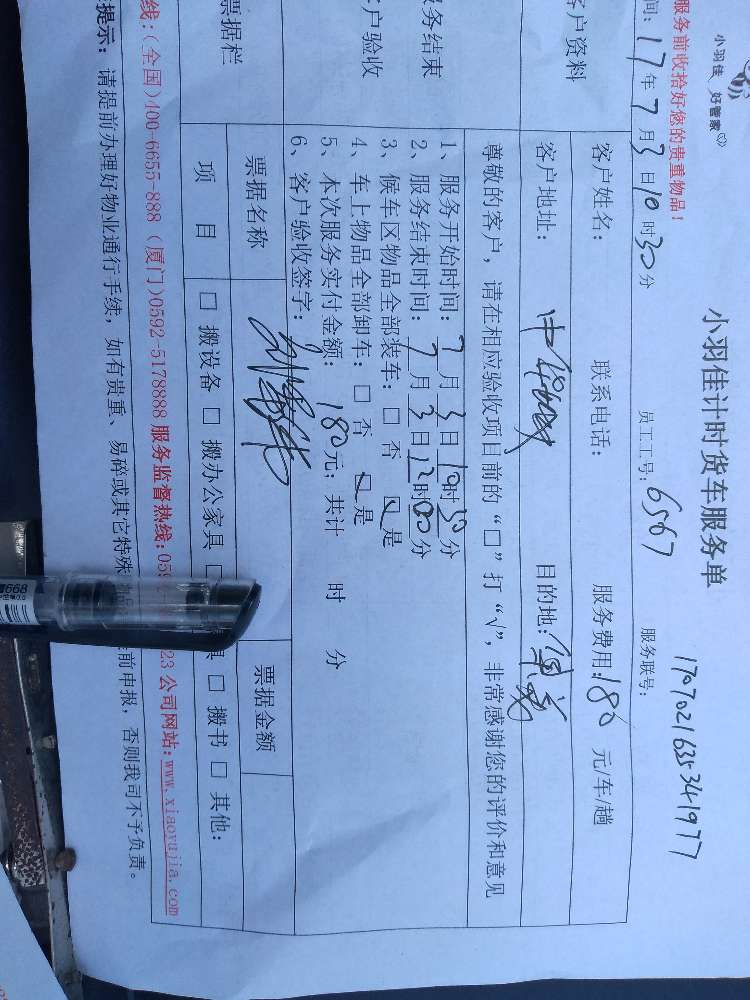 小羽佳 好管家
小羽佳计时货车服务单
170702163534 1977
服务前收拾好您的贵重物品！
间：17年7月3日10时30分 员工工号：6567 服务联号：
客户资料
客户姓名： 联系电话： 服务费用：180 元/车/趟
客户地址： 目的地：
尊敬的客户，请在相应验收项目前的“□”打“√”，非常感谢您的评价和意见
务结束
户验收
1、服务开始时间：7月3日10时30分
2、服务结束时间：7月3日12时00分
3、候车区物品全部装车：□ 否 □ 是
4、车上物品全部卸车：□ 否 □ 是
5、本次服务实付金额：180元；共计 时 分
6、客户验收签字：
票据栏
票据名称 票据金额
项 目 □ 搬设备 □ 搬办公家具 □ 具 □ 搬书 □ 其他：
线：(全国)400-6655-888 (厦门)0592-5178888 服务监督热线：059 23 公司网站：www.xiaoyujia.com
提示：请提前办理好物业通行手续，如有贵重、易碎或其它特殊 前申报，否则我司不予负责。
668